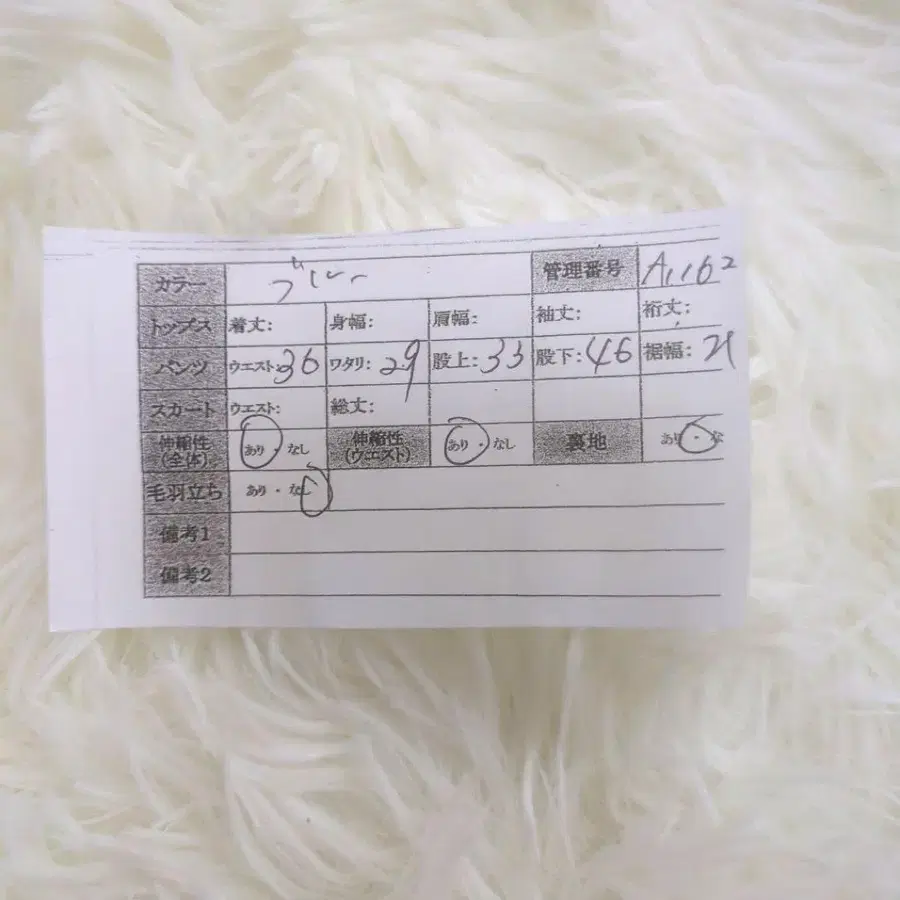 カラー ブルー 管理番号 A1162
トップス 着丈: 身幅: 肩幅: 袖丈: 裄丈:
パンツ ウエスト:36 ワタリ:29 股上:33 股下:46 裾幅:21
スカート ウエスト: 総丈:
伸縮性(全体) あり・なし 伸縮性(ウエスト) あり・なし 裏地 あり・な
毛羽立ち あり・なし
備考1
備考2